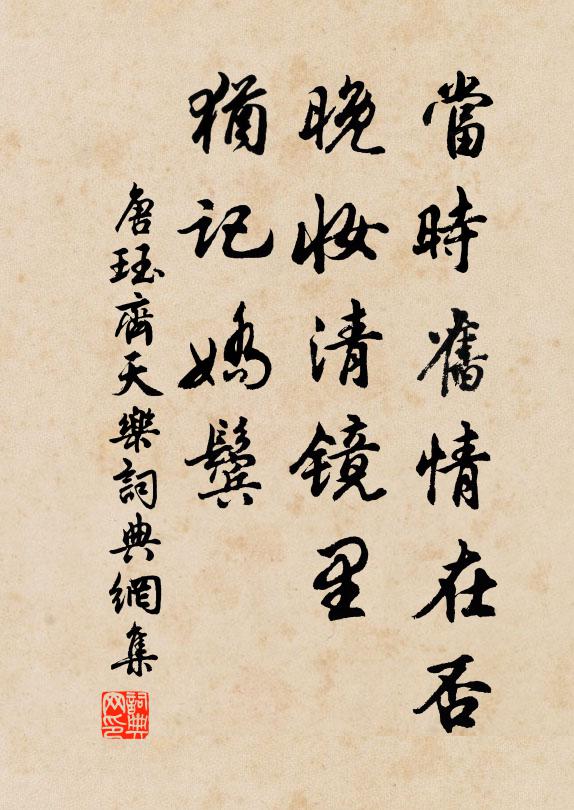 當時舊情在否
晚妝清镜里
猶記嬌鬢
唐珏齊天樂詞典網集
詞典网印